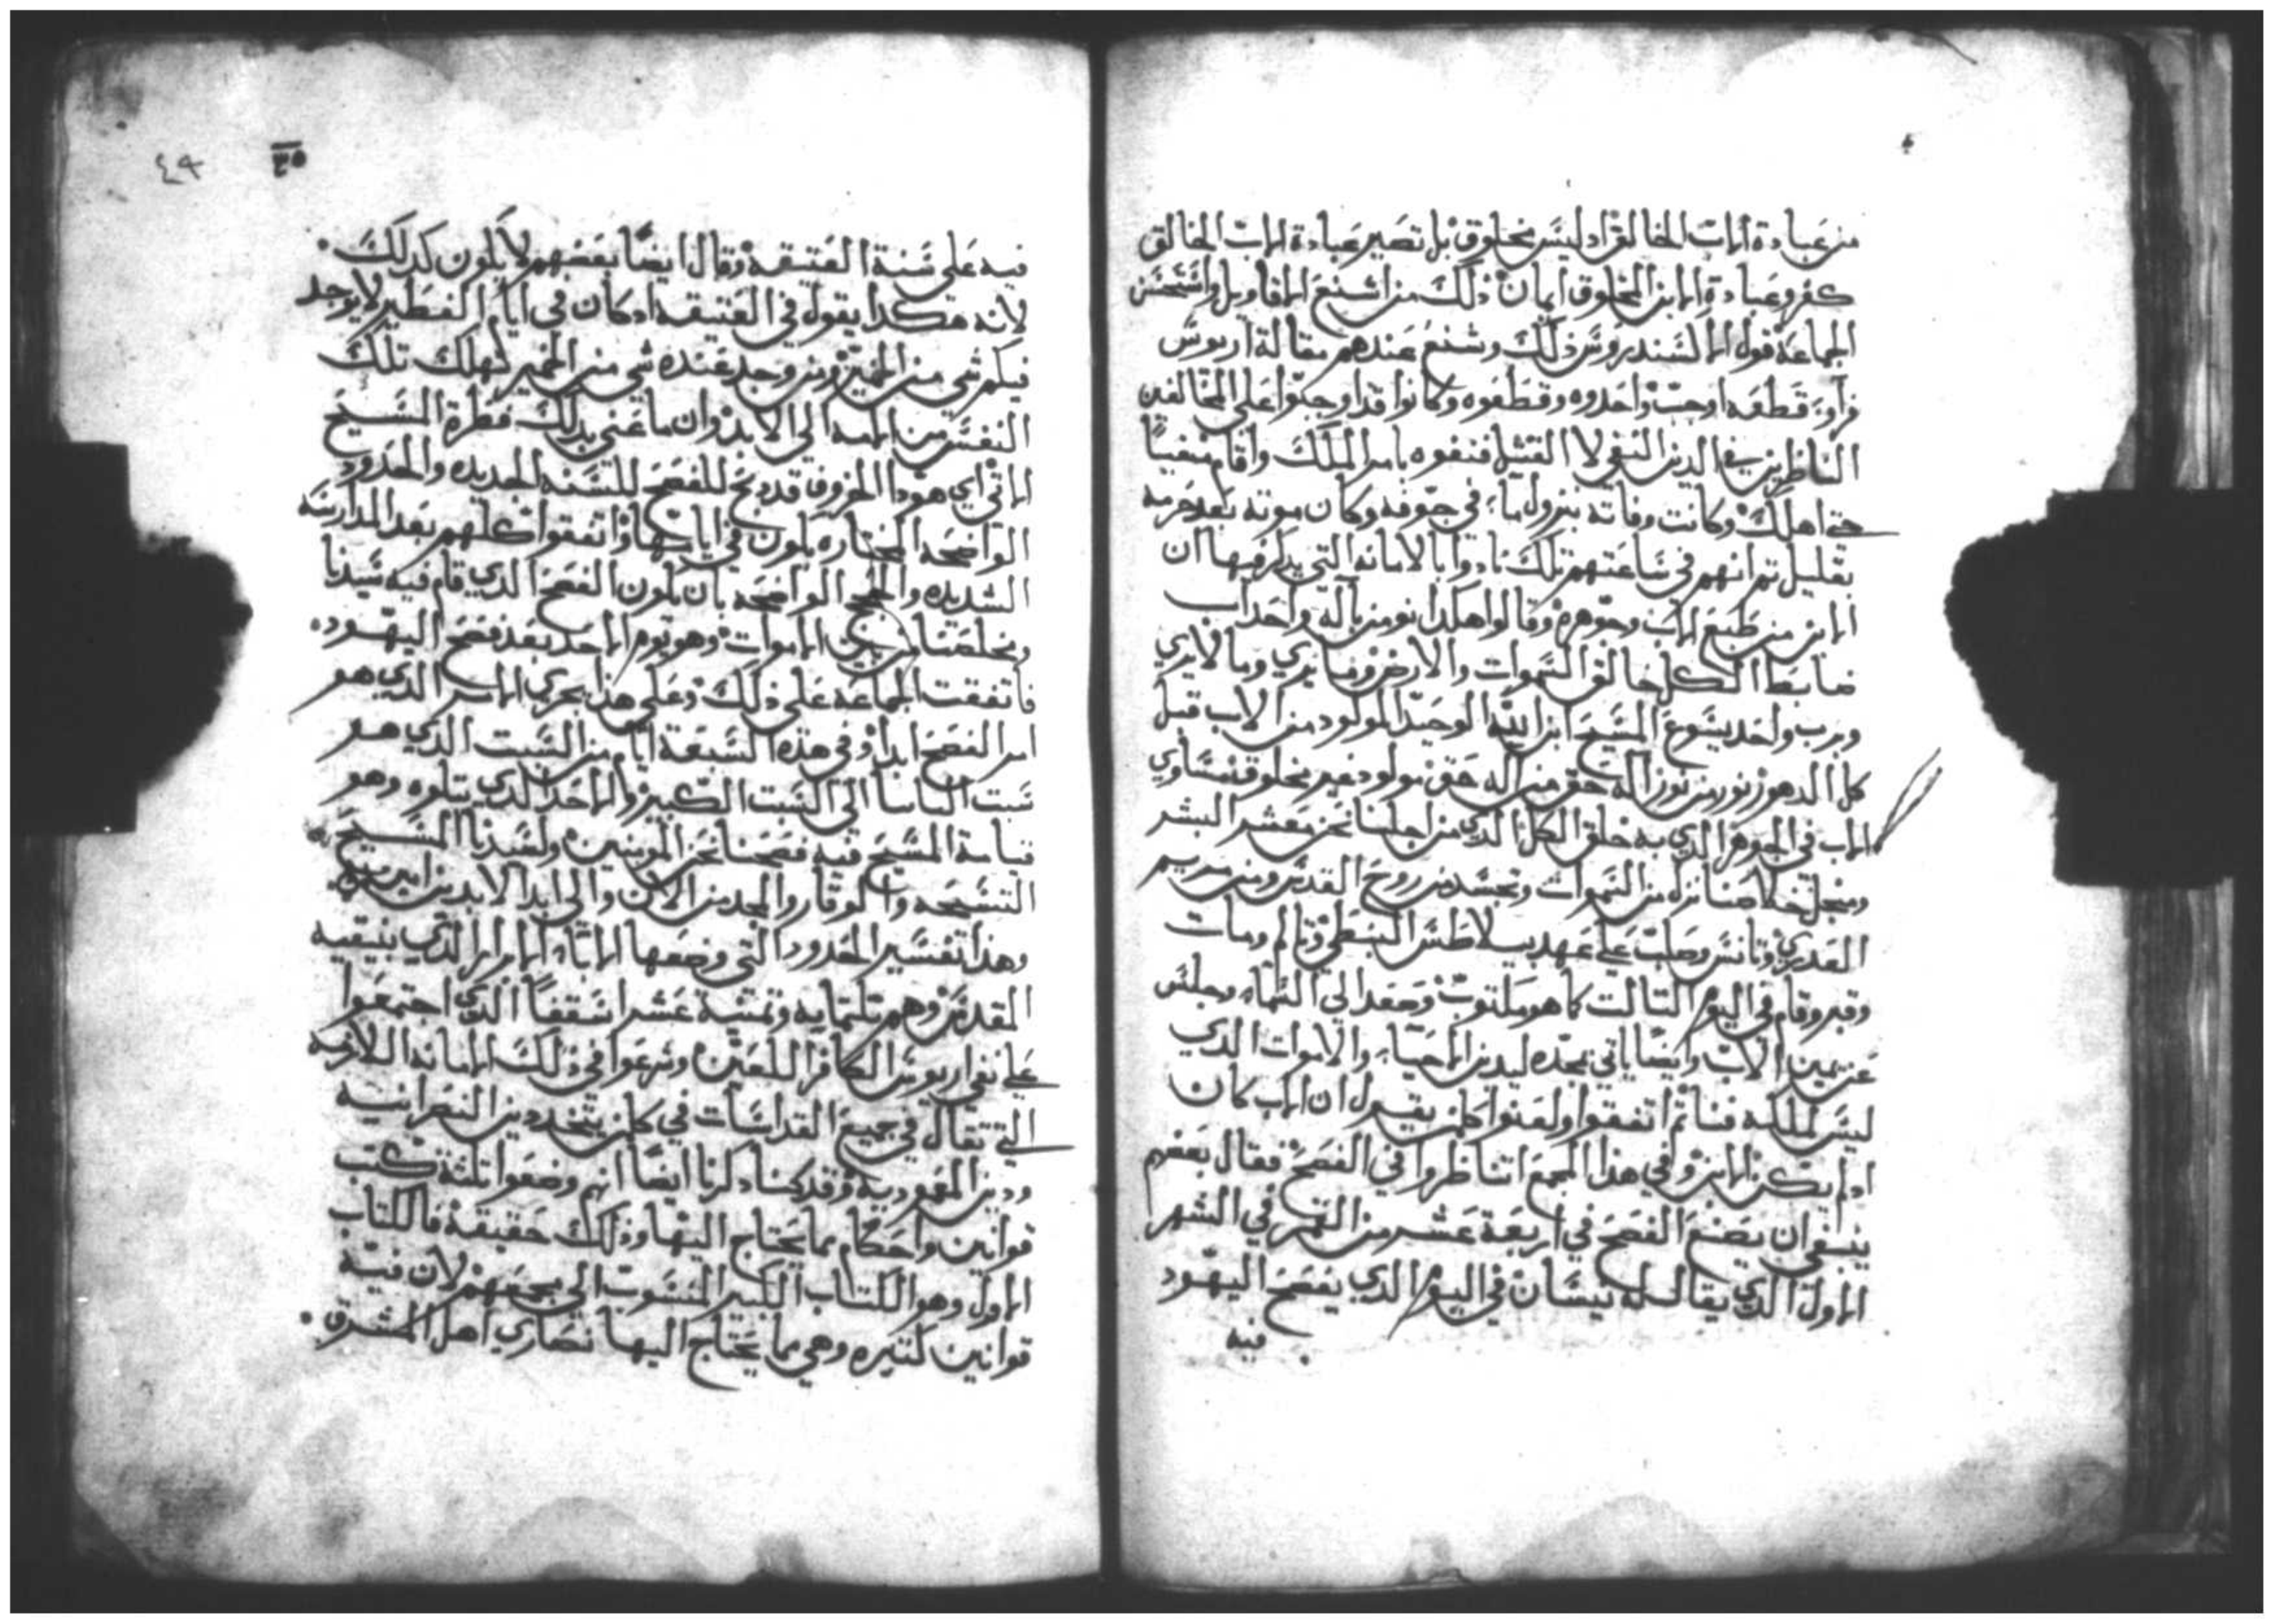 من عبادة الاب الخالق اد ليس بمخلوق بل تصير عبادة الاب الخالق
كفر وعبادة الابن المخلوق ايمان ذلك من اشنع الاقاويل واستحسن
الجماعة قول الاكسندروس ذلك وشنع عندهم مقالة اريوس
قطعه اوجب واحدوه وقطعوه وكانوا قد اوجبوا على المخالفين
الناظرين في الدين النفي لا القتل فنفوه بامر الملك واقام منفيًا
حتى اهلك وكانت وفاته بنزول ماء في جوفه وكان موته بعد حرمه
بقليل تم انهم في ساعتهم تلك نادوا بالامانه التي يدكر فيها ان
الابن من طبع الاب وجوهره وقالوا هكدا نومن باله واحد اب
ضابط الكل خالق السموات والارض وما يري وما لا يري
وبرب واحد يسوع المسيح ابن الله الوحيد المولود من الاب قبل
كل الدهور نور من نور اله حق من اله حق مولود غير مخلوق مساوي
الاب في الجوهر الدي به خلق الكل الدي من اجلنا نحن معشر البشر
ومنجل خلاصنا نزل من السموات وتجسد من روح القدس ومن مريم
العدري وتانس وصلب على عهد بيلاطس البنطي وتالم ومات
وقبر وقام في اليوم التالت كما هو مكتوب وصعد الي السماء وجلس
عن يمين الاب وايضًا ياتي بمجده ليدين الاحياء والاموات الدي
ليس لملكه فناء تم اتفقوا ولعنوا كلمن يقول ان الاب كان
اد لم يكن الابن وفي هذا المجمع اتناظروا في الفصح فقال بعضهم
ينبغي ان يصنع الفصح في اربعة عشر من القمر في الشهر
الاول الدي يقال له نيسان في اليوم الدي يفصح اليهود
فيه
٤٩
فيه على سنة العتيقه وقال ايضًا بعضهم لا يكون كدلك
لانه هكدا يقول في العتيقه ادكان في ايام الفطير لا يوجد
فيكم شي من الخمير ومن وجد عنده شي من الخمير تهلك تلك
النفس من امه الي الابد وان ما عني بدلك فطرة المسيح
الاتي اي هودا الخروف قد دبح للفصح للسنه الجديده والحدود
الواضحه المختاره يكون في اتفقوا كلهم بعد المدارسه
الشديده والحجج الواضحه بان يكون الفصح الدي قام فيه سيدنا
ومخلصنا من بين الاموات وهو يوم الاحد بعد فصح اليهود
فاتفقت الجماعه على ذلك وعلى هذا يجري الامر الدي هو
امر الفصح ابدا وفي هذه السبعة ايام من السبت الدي هو
سبت الباسا الى السبت الكبير والاحد الدي يتلوه وهو
قيامة المسيح فيه فصحنا نحن المومنين ولسيدنا المسيح
التسبحه والوقار والمجد من الان والي ابد الابدين امين
وهذا تفسير الحدود التي وضعها الاباء الابرار الدي بنيقيه
المقدس وهم تلتمايه وتمنية عشر اسقفًا الدي اجتمعوا
على نفي اريوس الكافر اللعين وشرعوا في ذلك الامانه اللازمه
التي تقال في جميع القداسات في كلمن يتخد دين النصرانيه
ودين المعموديه وقد كنا دكرنا ايضًا انهم وضعوا تلتة كتب
قوانين واحكام مما يحتاج اليها وذلك حقيقة فالكتاب
الاول وهو الكتاب الكبير المنسوب الي مجمعهم لان فيه
قوانين كتيره وهي مما يحتاج اليها نصاري اهل المشرق